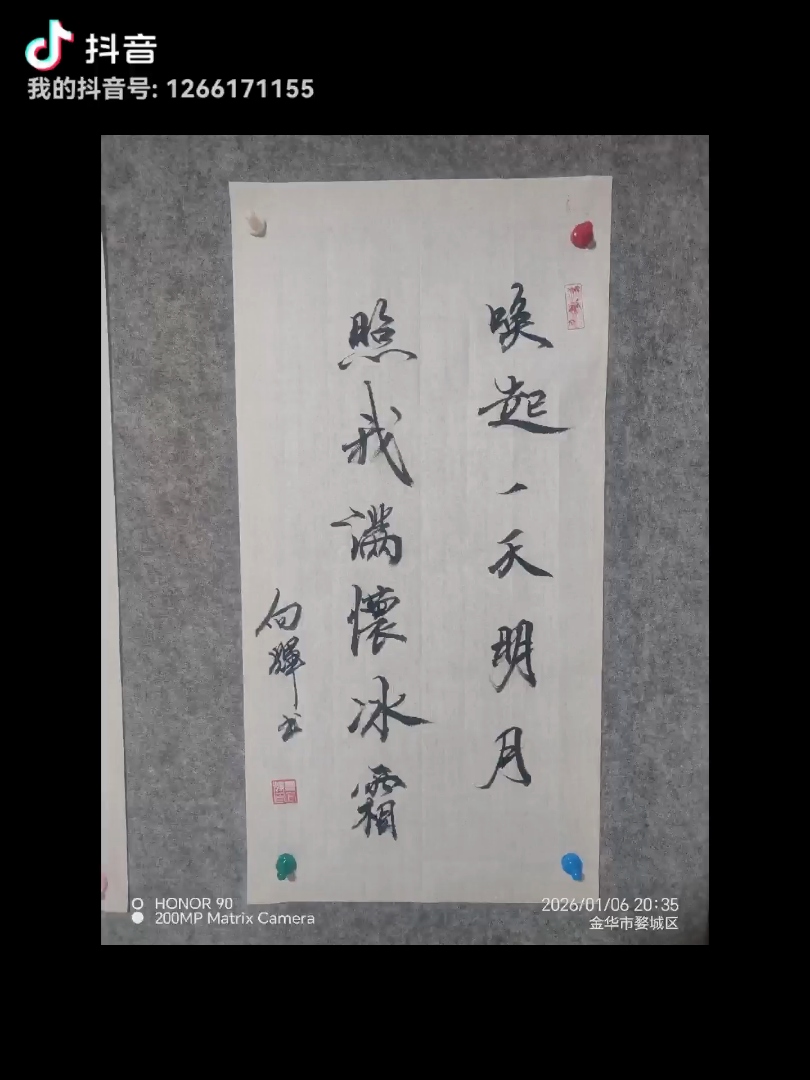 抖音
我的抖音号: 1266171155
喚起一天明月
照我满懷冰霜
向輝书
HONOR 90
200MP Matrix Camera
2026/01/06 20:35
金华市婺城区